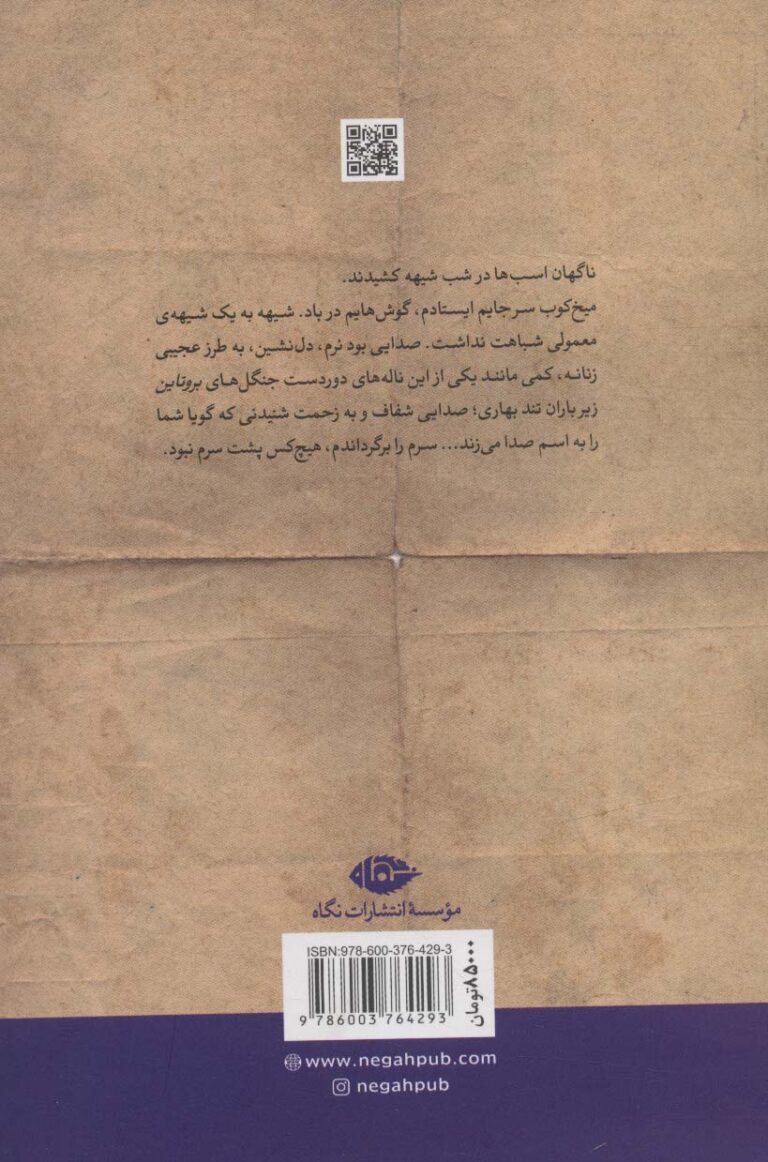 ناگهان اسب‌ها در شب شیهه کشیدند.
میخ‌کوب سر جایم ایستادم، گوش‌هایم در باد. شیهه به یک شیهه‌ی
معمولی شباهت نداشت. صدایی بود نرم، دل‌نشین، به طرز عجیبی
زنانه، کمی مانند یکی از این ناله‌های دوردست جنگل‌های بروتاین
زیر باران تند بهاری؛ صدایی شفاف و به زحمت شنیدنی که گویا شما
را به اسم صدا می‌زند... سرم را برگرداندم، هیچ‌کس پشت سرم نبود.
مؤسسهٔ انتشارات نگاه
ISBN:978-600-376-429-3
9 786003 764293
۸۵۰۰۰ تومان
www.negahpub.com
negahpub